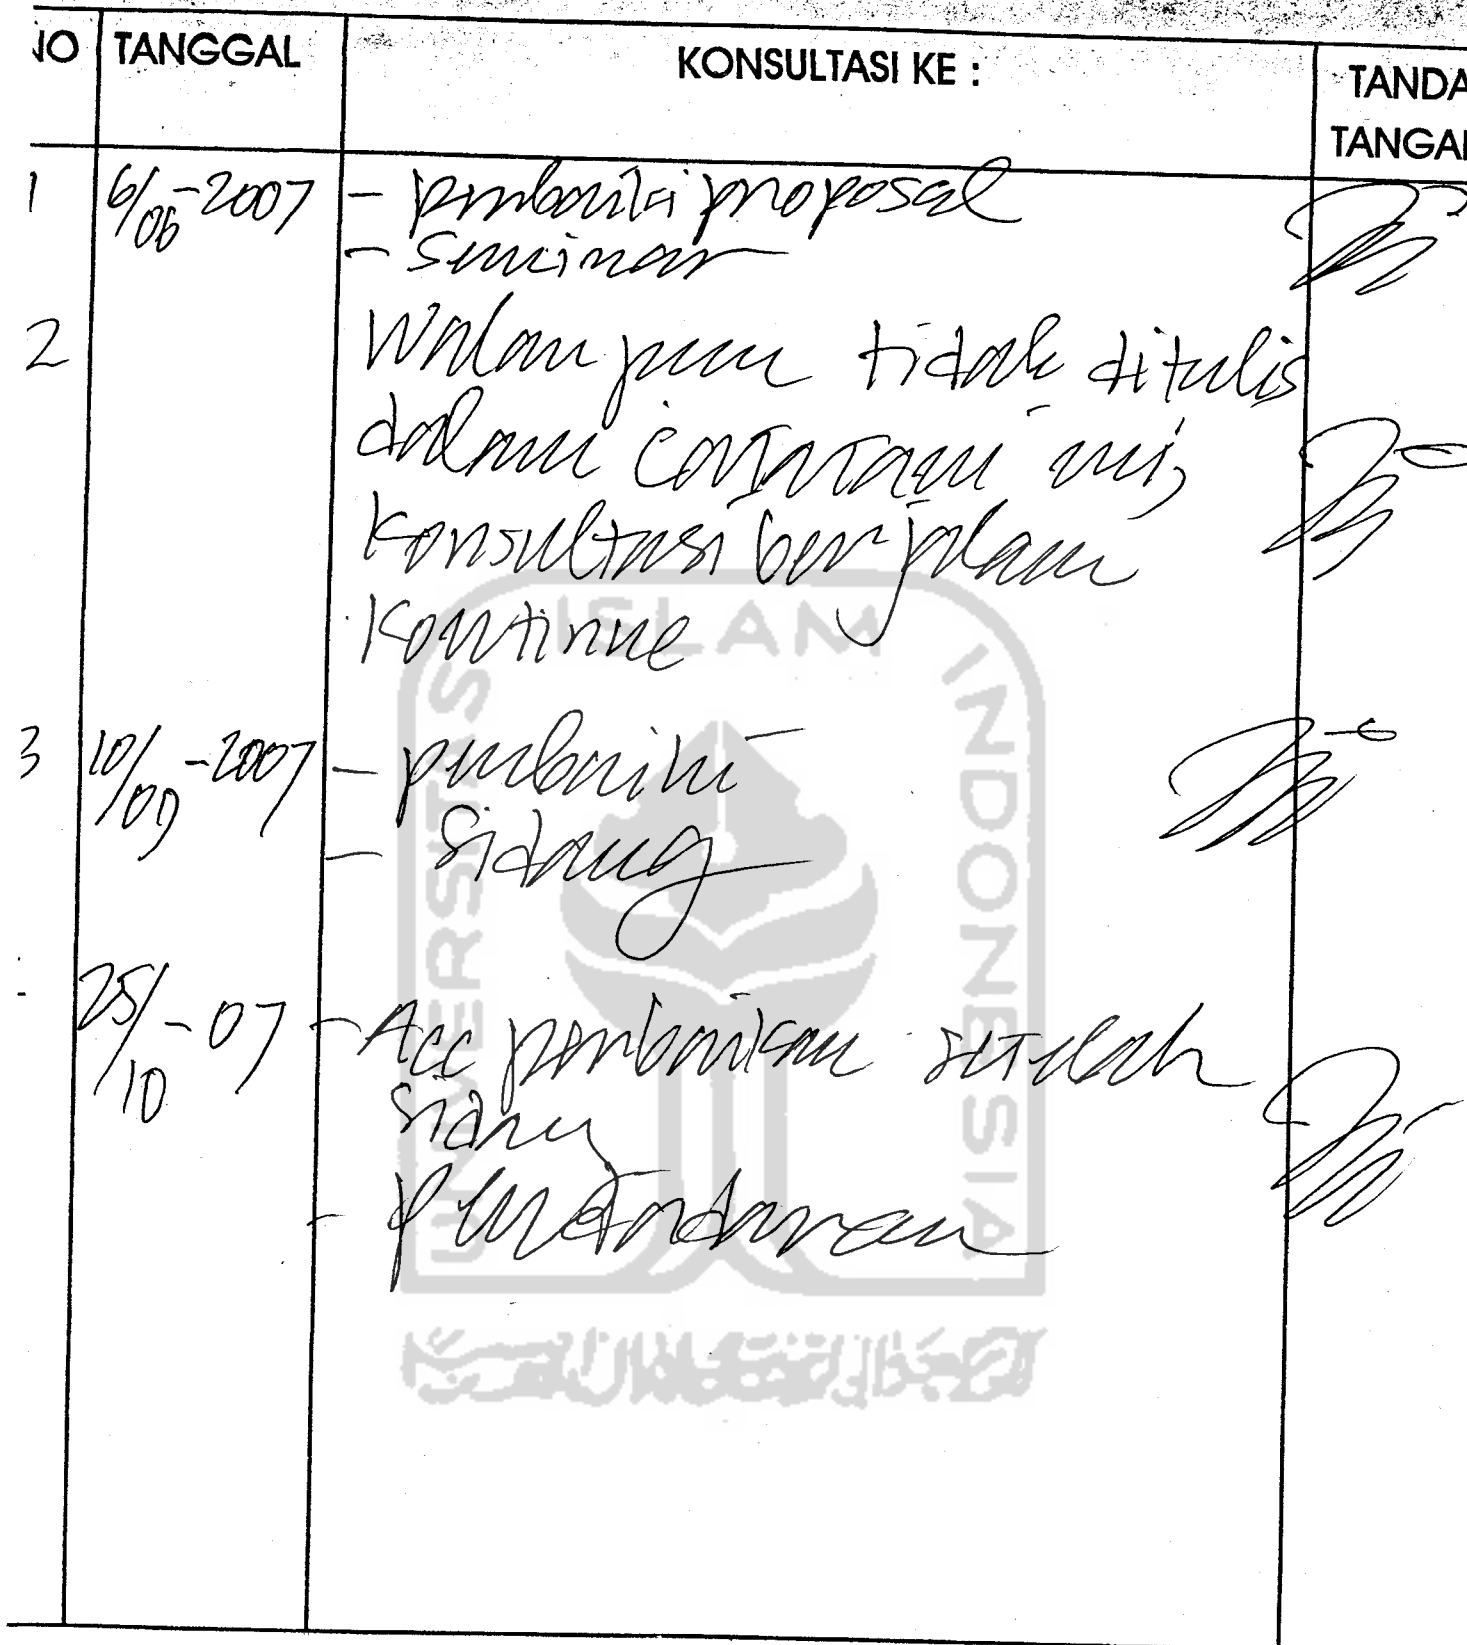 NO TANGGAL KONSULTASI KE : TANDA
TANGAN
1 6/06-2007 - perbaiki proposal
- Seminar
2 Walaupun tidak ditulis
dalam catatan ini,
Konsultasi berjalan
Kontinue
3 10/09-2007 - perbaiki
- Sidang
25/10-07 - Acc perbaikan setelah
sidang
- Pendadaran
UNIVERSITAS ISLAM INDONESIA